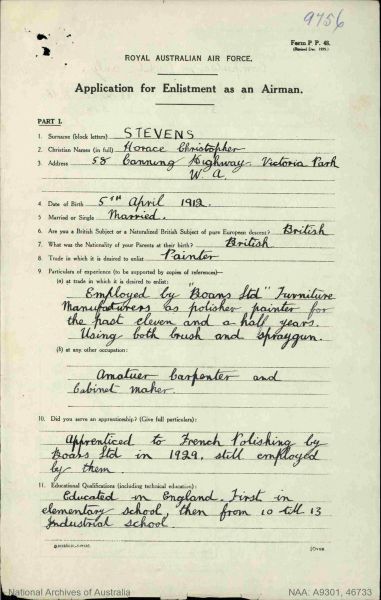 9756
Form P.P. 48.
ROYAL AUSTRALIAN AIR FORCE.
Application for Enlistment as an Airman.
PART I.
1. Surname (block letters) STEVENS
2. Christian Names (in full) Horace Christopher
3. Address 58 Canning Highway Victoria Park
W.A.
4. Date of Birth 5TH April 1912.
5. Married or Single Married.
6. Are you a British Subject or a Naturalized British Subject of pure European descent? British
7. What was the Nationality of your Parents at their birth? British
8. Trade in which it is desired to enlist Painter
9. Particulars of experience (to be supported by copies of references)—
(a) at trade in which it is desired to enlist:
Employed by "Boans Ltd" Furniture
Manufacturers as polisher painter for
the past eleven and a half years.
Using both brush and spraygun.
(b) at any other occupation:
Amatuer Carpenter and
Cabinet maker.
10. Did you serve an apprenticeship? (Give full particulars):
Apprenticed to French Polishing by
Boans Ltd in 1929, still employed
by them.
11. Educational Qualifications (including technical education):
Educated in England. First in
elementary school, then from 10 till 13
Industrial school.
[Over.
National Archives of Australia
NAA: A9301, 46733